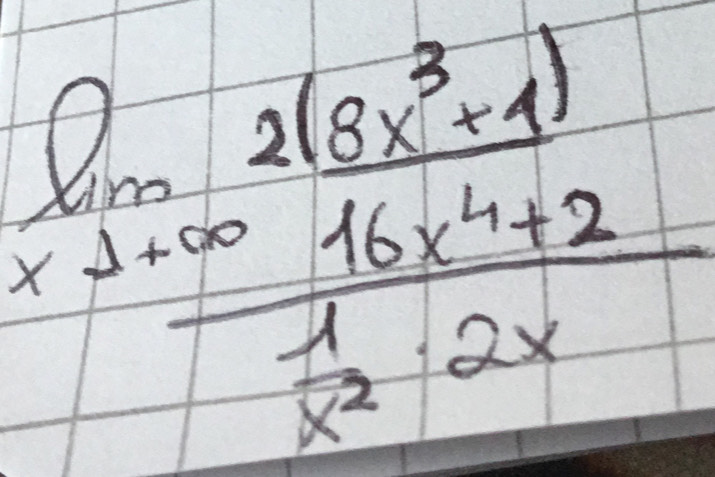 lim 2(8x³+1)
x→+∞ 16x⁴+2
1/x² · 2x